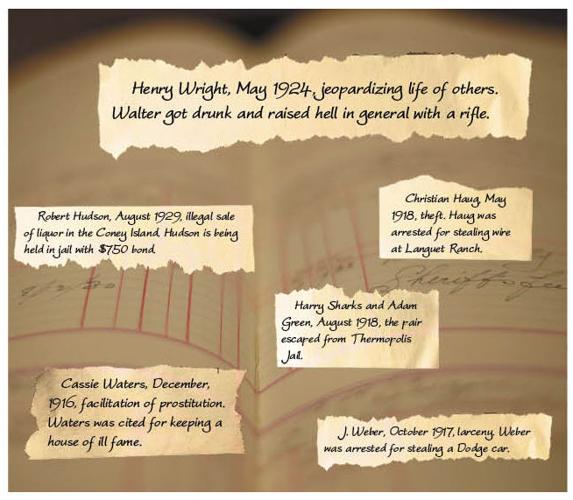 Henry Wright, May 1924, jeopardizing life of others.
Walter got drunk and raised hell in general with a rifle.
Robert Hudson, August 1929, illegal sale
of liquor in the Coney Island. Hudson is being
held in jail with $750 bond.
Christian Haug, May
1918, theft. Haug was
arrested for stealing wire
at Languet Ranch.
Sheriff's Fee
Harry Sharks and Adam
Green, August 1918, the pair
escaped from Thermopolis
Jail.
Cassie Waters, December,
1916, facilitation of prostitution.
Waters was cited for keeping a
house of ill fame.
J. Weber, October 1917, larceny. Weber
was arrested for stealing a Dodge car.